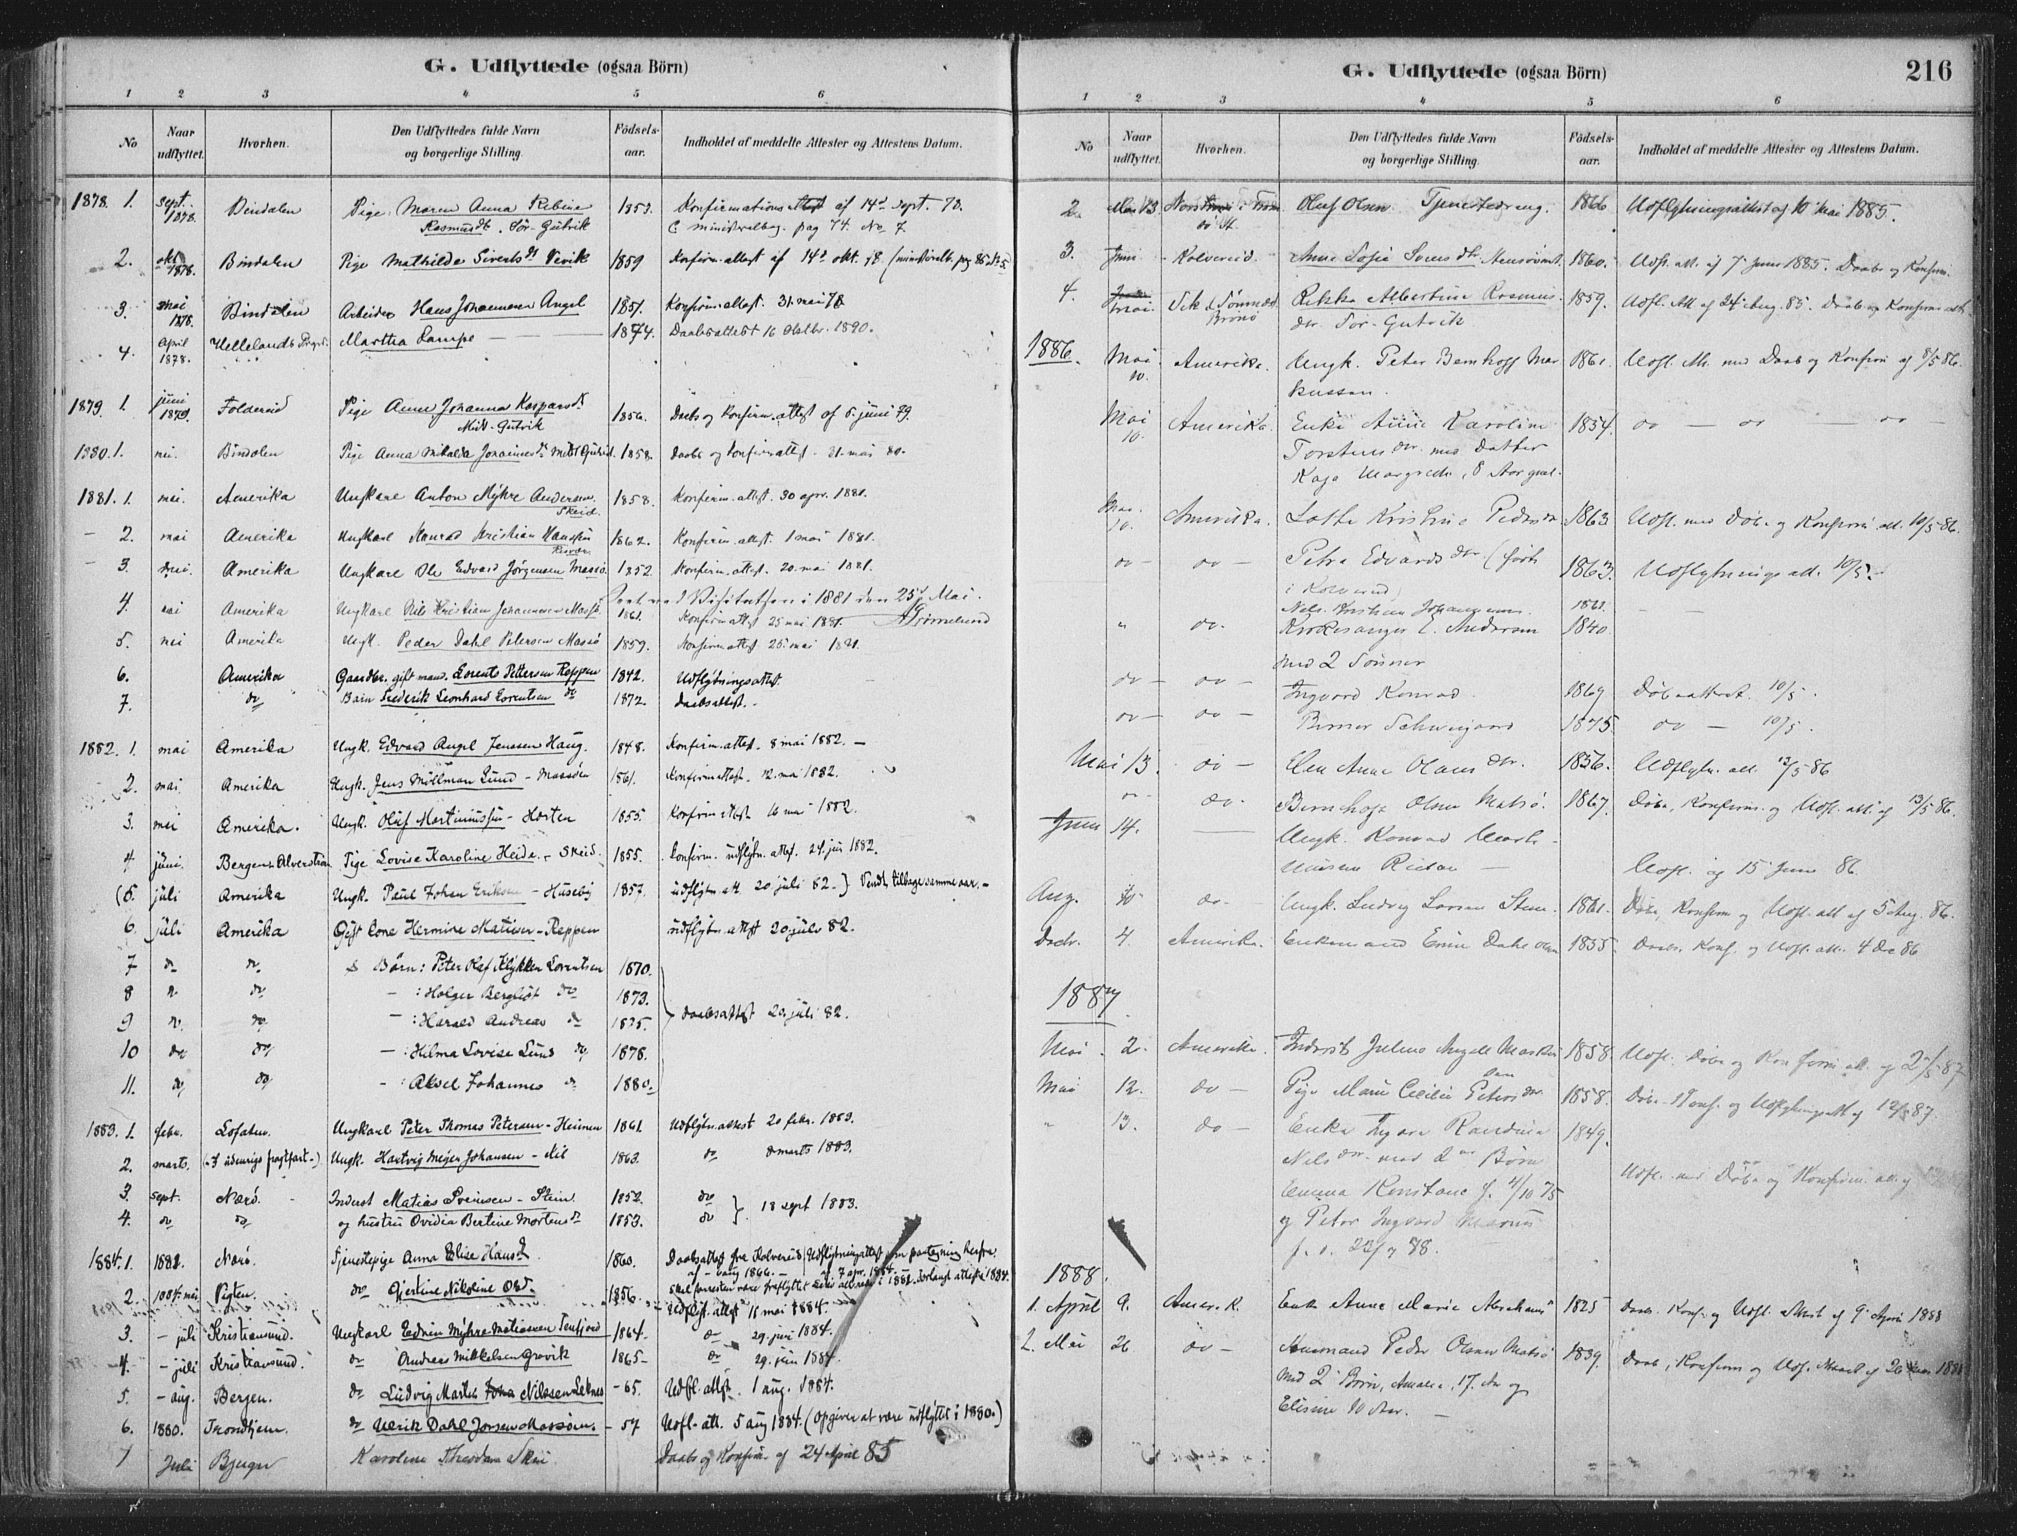 G. Udflyttede (ogsaa Börn)
1 2 3 4 5 6
No Naar udflyttet. Hvorhen. Den Udflyttedes fulde Navn og borgerlige Stilling. Födsels-aar. Indholdet af meddelte Attester og Attestens Datum.
1878. 1. Sept. 1878. Bindalen Pige Maren Anna Rebina 1853. Konfirmationsattest af 14d sept. 78.
Rasmusdt. Sör-Gutvik C ministerialbog pag 74. No 7
2. okt 1878. Bindalen Pige Mathilde Sivertsdt 1859 Konfirm.attest af 14d okt. 78
3. mai 1878. Bindalen Arbeider Hans Johannesen Angel 1851. Konfirm.attest. 31. mai 78
4. April 1878. Martha Lampe 1874. Daabsattest 16 Oktbr. 1890.
1879. 1. juni 1879. Foldereid Pige Anne Johanna Kaspersdt. 1856. Daabs og Konfirm.attest af 6 juni 79.
Midt-Gutvik
1880. 1. mai. Bindalen Pige Anna Mikalda Johannesdt. 1858. Daabs og konfirm.attest. 21. mai 80.
1881. 1. mai. Amerika Ungkarl Anton Myhre Andersen 1858. Konfirm.attest. 30 apr. 1881.
Skeid.
- 2. mai Amerika Ungkarl Konrad Kristian Hansen 1862. Konfirm.attest. 1 mai 1881.
- 3. mai. Amerika Ungkarl Ole Edvard Jörgensen Massö 1852 Konfirm.attest. 20. mai 1881.
Visitatsen i 1881 den 25d Mai.
4. mai Amerika Ungkarl Nils Kristian Johannesen Massö 1861. Konfirm.attest 25 mai 1881. Grimelund
5. mai Amerika Ungk. Peder Dahl Petersen Massö 1859. Konfirm.attest. 25. mai 1881.
6. Amerika Gaardbr. gift mand. Lorents Pettersen Reppen 1842. Udflytningsattest
7. do Barn Frederik Leonhard Lorentsen do 1872. Daabsattest.
1882. 1. mai Amerika Ungk. Edvard Angel Jenssen Haug. 1848. Konfirm.attest. 8 mai 1882. —
2. mai. Amerika Ungk. Jens Möllman Lund - Massöen 1861. Konfirm.attest. 12. mai 1882.
3. mai Amerika. Ungk. Oluf Martinussen - Horten 1855. Konfirm.attest 16 mai 1882.
4 juni. Bergen Pige Lovise Karoline Heide - Skeid. 1855. Konfirm. udflytn.attest. 24. juni 1882.
(5. juli Amerika Ungk. Paul Johan Eriksen - Huseby 1857. udflytn.att 20 juli 82.) Vendt tilbage samme aar. -
6. juli Amerika Gift Kone Hermine Matisen - Reppen udflytn.attest 20 juli 82.
7 do do & Börn: Peter Olaf Klykken Lorentsen 1870.
8 do do - : Holger Berglist do 1873.
9 do. do - : Harald Andreas do 1875. Daabsattest 20. juli 82.
10 do do - : Hilma Lovise Lund do 1878.
11. do do - : Aksel Johannes do 1880.
1883. 1. febr. Lofoten. Ungkarl Peter Thomas Petersen - Heimen 1861. Udflytn.attest 20 febr. 1883.
2. marts. (- I udenrigs fragtfart -) Ungk. Hartvig Meyer Johansen - 1863. do marts 1883.
3. sept. Nærö. Inderst Matias Sveinsen - Stein 1852. do
4. do do og hustru Ovidia Bertine Mortensdt 1853. do } 18 sept 1883.
1884. 1. 1882. Nærö. Tjenestepige Anna Elise Hansdt. 1860. Daabsattest fra Kolvereid, Udflytningsattest
2. 1884. mai Vigten. do Gjertine Nikoline Olsdt. 1856. Udflytn.attest 16 mai 1884.
3. - juli Kristiansund. Ungkarl Edvin Myhre Matiassen Tenfjord 1864. do 29. juni 1884.
4. - juli Kristiansund. do Andreas Mikkelsen Gravik 1865 - do 29. juni 1884.
5. - aug. Bergen. do Ludvig Martin Nilssen Leknes - 65. Udfl.attest. 1 aug. 1884.
6. 1880. Trondhjem. do Ulrik Dahl Jorsen Massöen. - 57 Udfl.att. 5 aug 1884. (Opgiver at være udflyttet i 1880.)
7 Juli Karoline Theodora Daabs og Konfirm af 24 April 85
G. Udflyttede (ogsaa Börn) 216
1 2 3 4 5 6
No Naar udflyttet. Hvorhen. Den Udflyttedes fulde Navn og borgerlige Stilling. Födsels-aar. Indholdet af meddelte Attester og Attestens Datum.
2. Mai 13 Oluf Olsen Tjenestedreng. 1866 Udflytningsattest af 10 Mai 1885.
3. Juni - Kolvereid. Anne Sofie 1860. Udfl. att. af 7 Juni 1885. Daabs og Konfirm.
4. Mai. Brönö Rikka Albertine Rasmusdtr Sör-Gutvik 1859. Udfl. Att af 24 Aug. 85. Daabs og Konfirm att
1886. Mai 10. Amerika. Ungk. Peter Bernhoff Markussen. 1861. Udfl. Att. med Daab og Konfirm af 8/5 86.
Mai 10. Amerika. Enke Anne Karoline 1854. do — do — do —
Torstensdtr. med Datter
Kaja Margrethe, 8 Aar gml.
Mai 10. Amerika. Lotte Kristine Pedersdtr 1863 Udfl. med Döbs og Konfirm att. 10/5-86.
do - do - Petra Edvardsdtr (födt 1863. Udflytnings att. 10/5-
i Kolvereid)
Nils Kristian Johannesen. 1861. — —
" do. Kirkesanger E. Andersen 1840
med 2 Sönner
do - do - Ingvard Konrad. 1869 Döbsattest. 10/5.
do - do - Schweigaard 1875. do — 10/5.
Mai 13. do - Elen Anne Olausdtr. 1856. Udflytn. att. 13/5 86
do - do. Olsen Matsö. 1867. Döbs, Konfirm. og Udfl. att. af 13/5 86.
Juni 14. — Ungk. Konrad
Udfl. af 15 Juni 86.
Aug. do - Ungk. Ludvig Larsen 1861. Döbs, Konfirm og Udfl. att af 5 Aug. 86.
Decbr. 4. Amerika. Enkemand Dahl Olsen 1835. Daabs. Konf. og Udfl. att. 4 Dec 86
1887
Mai. 2. Amerika. Inderst Julius Angell 1858. Udfl. Döbs og Konfirm att. af 2/5-87
Mai 12. do - Pige Marie Cecilie Petersdtr. 1858. Döbs- Konf. og Udflytningsatt af 12/5 87.
" 13. do - Enke Randine 1849.
Nilsdtr. med 2 Börn Udfl. med Döbs og Konfirm. att. af
Emma Konstanse f. 4/10 75
og Peter Ingvard
f. d. 23/7 78.
1888.
1. April 9. Amerik. Enke Anne Marie 1825 Daabs. Konf. og Udfl. Attest af 9 April 1888
2. Mai 26. do - Huusmand Peder Olsen Matsö 1839. Daab, Konfirm og Udf. Attest af 26 1888
med 2 Börn, Amalie, 17. Aar og
Elisine 10 Aar. —